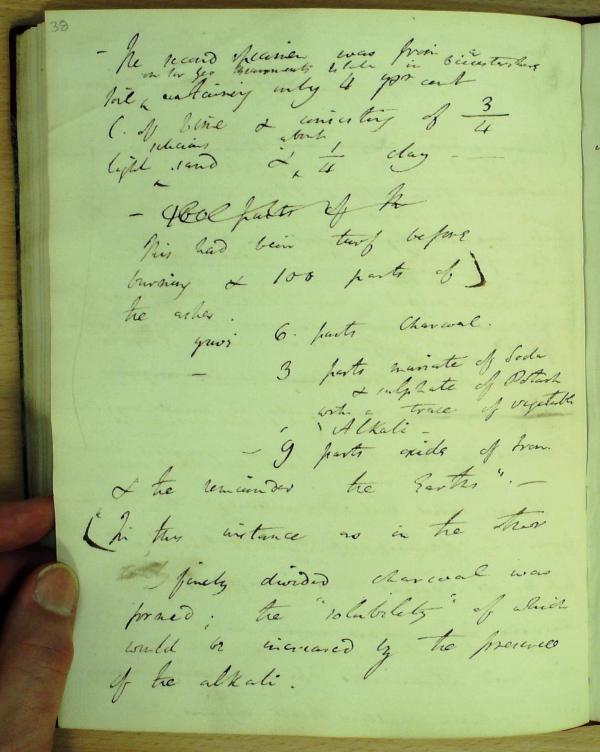 38
- The second specimen was from a
on Mr Geo. Beaumont's estate in Leicestershire
soil containing only 4 per cent
C. of lime & consisting of 3/4
light silicious sand & about 1/4 clay —
- 400 parts of the
This had been turf before
burning & 100 parts of
the ashes.
gave 6 parts charcoal.
— 3 parts muriate of Soda
& sulphate of Potash
with a trace of vegetable
Alkali —
- 9 parts oxide of Iron.
& the remainder the Earths". —
(In this instance as in the other
finely divided charcoal was
formed; the "solubility" of which
would be increased by the presence
of the alkali.